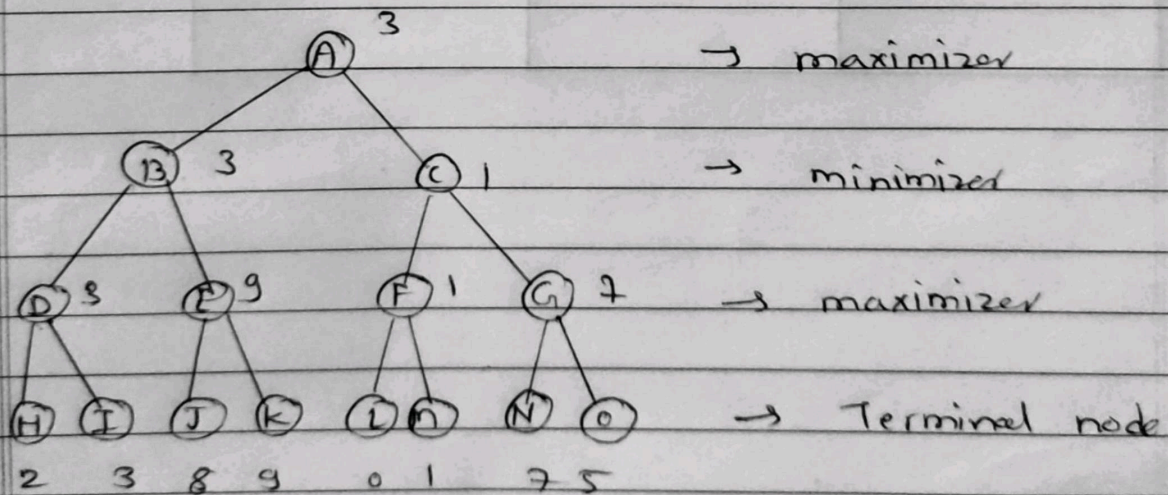 3
A → maximizer
B 3 C 1 → minimizer
D 3 E 9 F 1 G 7 → maximizer
H I J K L M N O → Terminal node
2 3 8 9 0 1 7 5